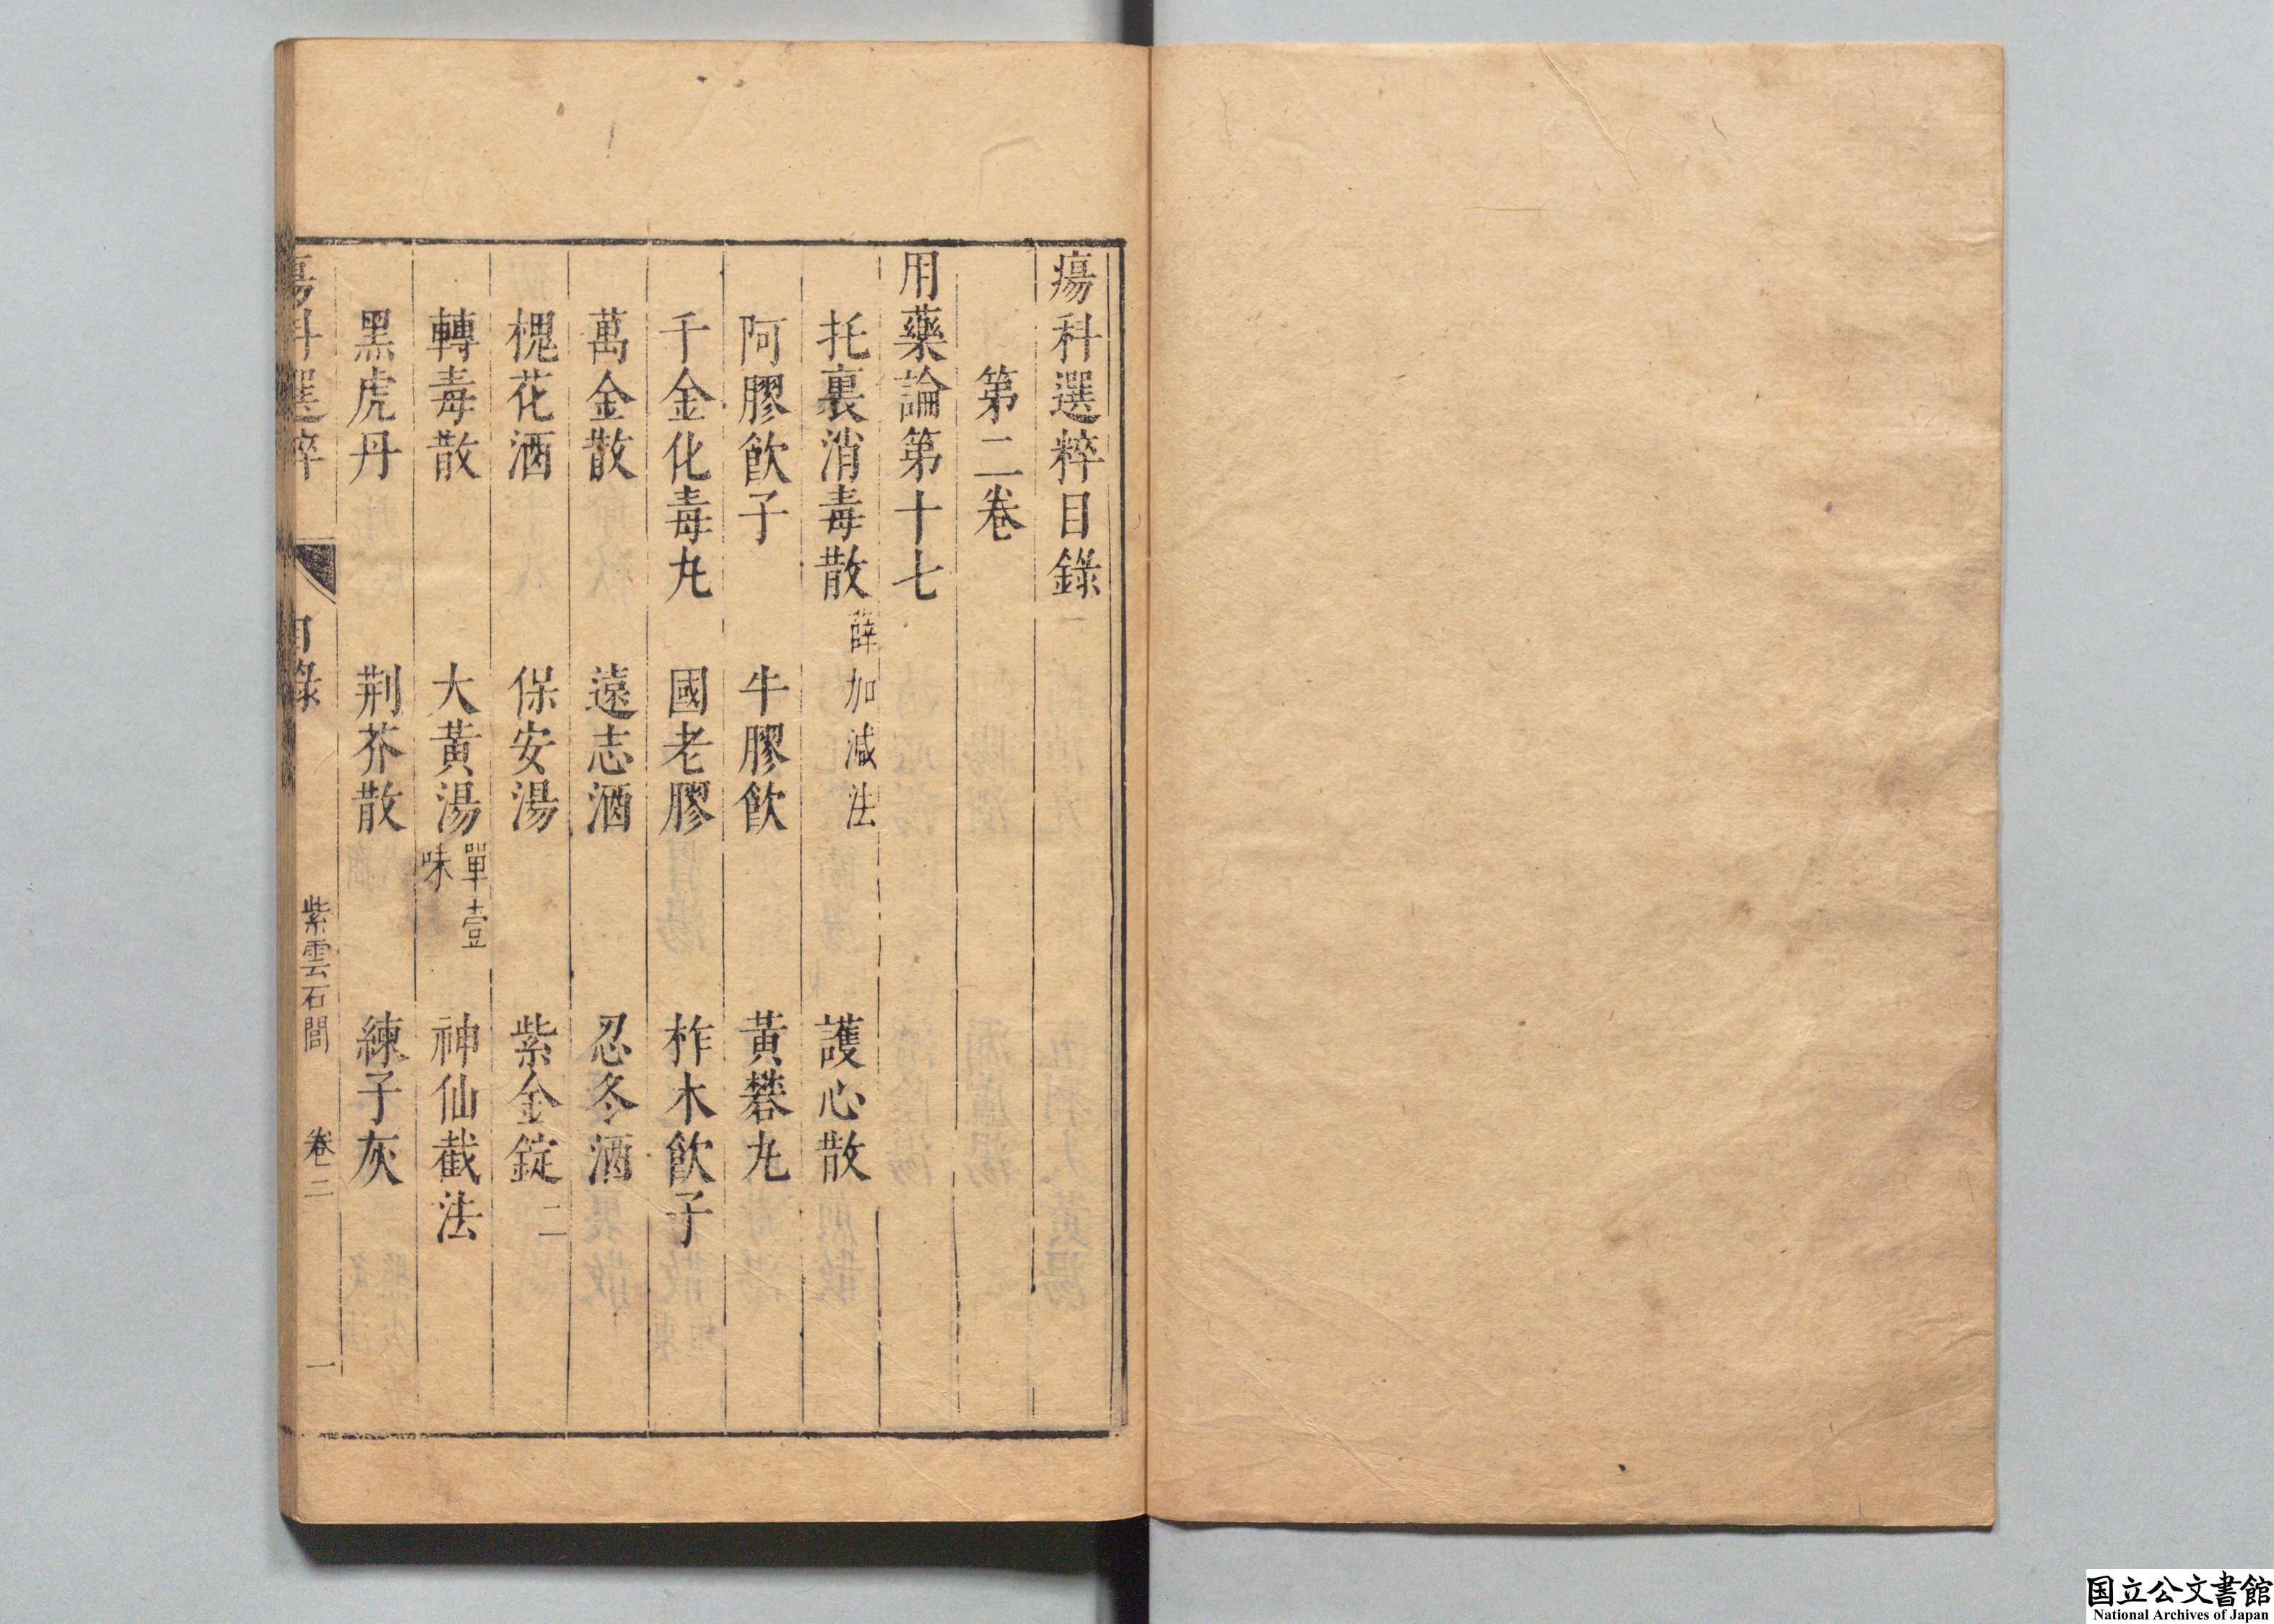 瘍科選粹目錄
第二卷
用藥論第十七
托裏消毒散 薛加減法 護心散
阿膠飲子 牛膠飲 黃礬丸
千金化毒丸 國老膠 柞木飲子
萬金散 遠志酒 忍冬酒
槐花酒 保安湯 紫金錠 二
轉毒散 大黃湯 單壹味 神仙截法
黑虎丹 荆芥散 練子灰
瘍科選粹 目錄 紫雲石閭 卷二 一
国立公文書館
National Archives of Japan